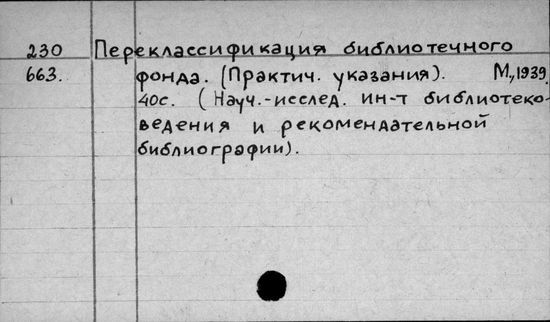 230 Переклассификация библиотечного
663. фонда. (Практич. указания). М., 1939.
40с. (Науч.-исслед. ин-т библиотеко-
ведения и рекомендательной
библиографии).